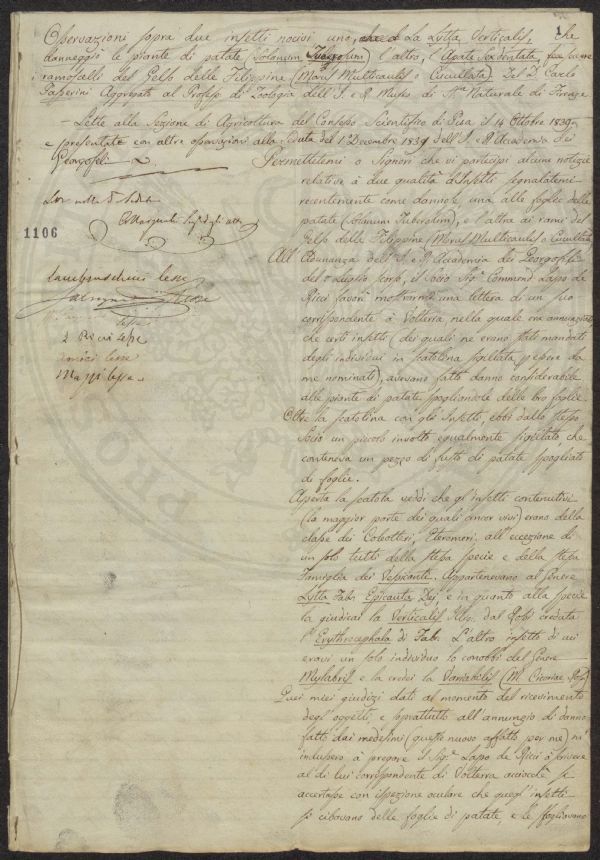 1
Osservazioni sopra due insetti nocivi uno, La Lytta Verticalis, che
danneggiò le piante di patate (Solanum Tuberosum) l'altro, l'Apate Sexdentata,
i ramoscelli del Gelso delle Filippine (Morus Multicaulis o Cucullata). Del D. Carlo
Passerini Aggregato al Profess. di Zoologia dell'I. e R. Museo di St.ª Naturale di Firenze
— Lette alla Sezione di Agricoltura del Congresso Scientifico di Pisa il 14 Ottobre 1839
e presentate con altre osservazioni alla seduta del 1º Decembre 1839 dell'I. e R. Accademia dei
Georgofili
Permettetemi o Signori che vi partecipi alcune notizie
relative à due qualità d'Insetti segnalatemi
recentemente come dannose, una alle foglie delle
patate (Solanum Tuberosum), e l'altra ai rami del
Gelso delle Filippine (Morus Multicaulis o Cucullata).
All' Adunanza dell'I. e R. Accademia dei Georgofili
del Luglio scorso, il Socio Sig.r Commend. Lapo de
Ricci favorì mostrarmi una lettera di un suo
corrispondente di Volterra nella quale era annunziato
che certi insetti (dei quali ne erano stati mandati
degli individui in scatolina sigillata p. essere da
me nominati), avevano fatto danno considerabile
alle piante di patate spogliandole delle loro foglie.
Oltre la scatolina con gli Insetti, ebbi dallo stesso
Socio un piccolo involto egualmente sigillato, che
conteneva un pezzo di fusto di patate spogliato
di foglie.
Aperta la scatola vidi che gl'insetti contenutivi
(la maggior parte dei quali ancor vivi) erano della
classe dei Coleotteri, Eteromeri, all'eccezione di
un solo tutti della stessa specie e della stessa
Famiglia dei Vessicante. Appartenevano al Genere
Lytta Fabr. Epicauta Dej. e in quanto alla specie
la giudicai la Verticalis Illig. dal Rossi creduta
l'Erythrocephala di Fabr. L'altro insetto di cui
eravi un solo individuo lo conobbi del Genere
Mylabris, e la credei la Variabilis (M. Cicoriae, Ross.)
Quei miei giudizj dati al momento del ricevimento
degli oggetti, e soprattutto all'annunzio di danno
fatto dai medesimi (questo nuovo affatto per me) m'
indussero à pregare il Sig.r Lapo de Ricci à scrivere
al di lui corrispondente di Volterra acciocchè si
accertasse con ispezione oculare che quegl'insetti
si cibavano delle foglie di patate, e le sfogliavano
1106
Lambruschini lesse
lesse
Ricci lesse
lesse
Mazzi lesse